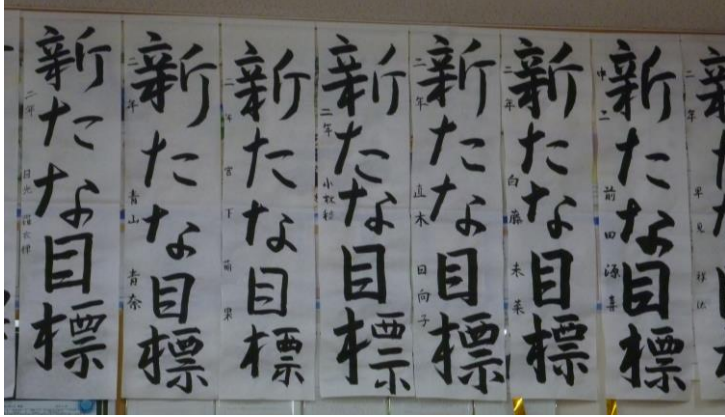 新たな目標
二年
新たな目標
二年 青山 青奈
新たな目標
二年 宮下
新たな目標
二年
新たな目標
二年 直木 日向子
新たな目標
二年 白藤 未菜
新たな目標
中二 前田 源喜
二年 早見